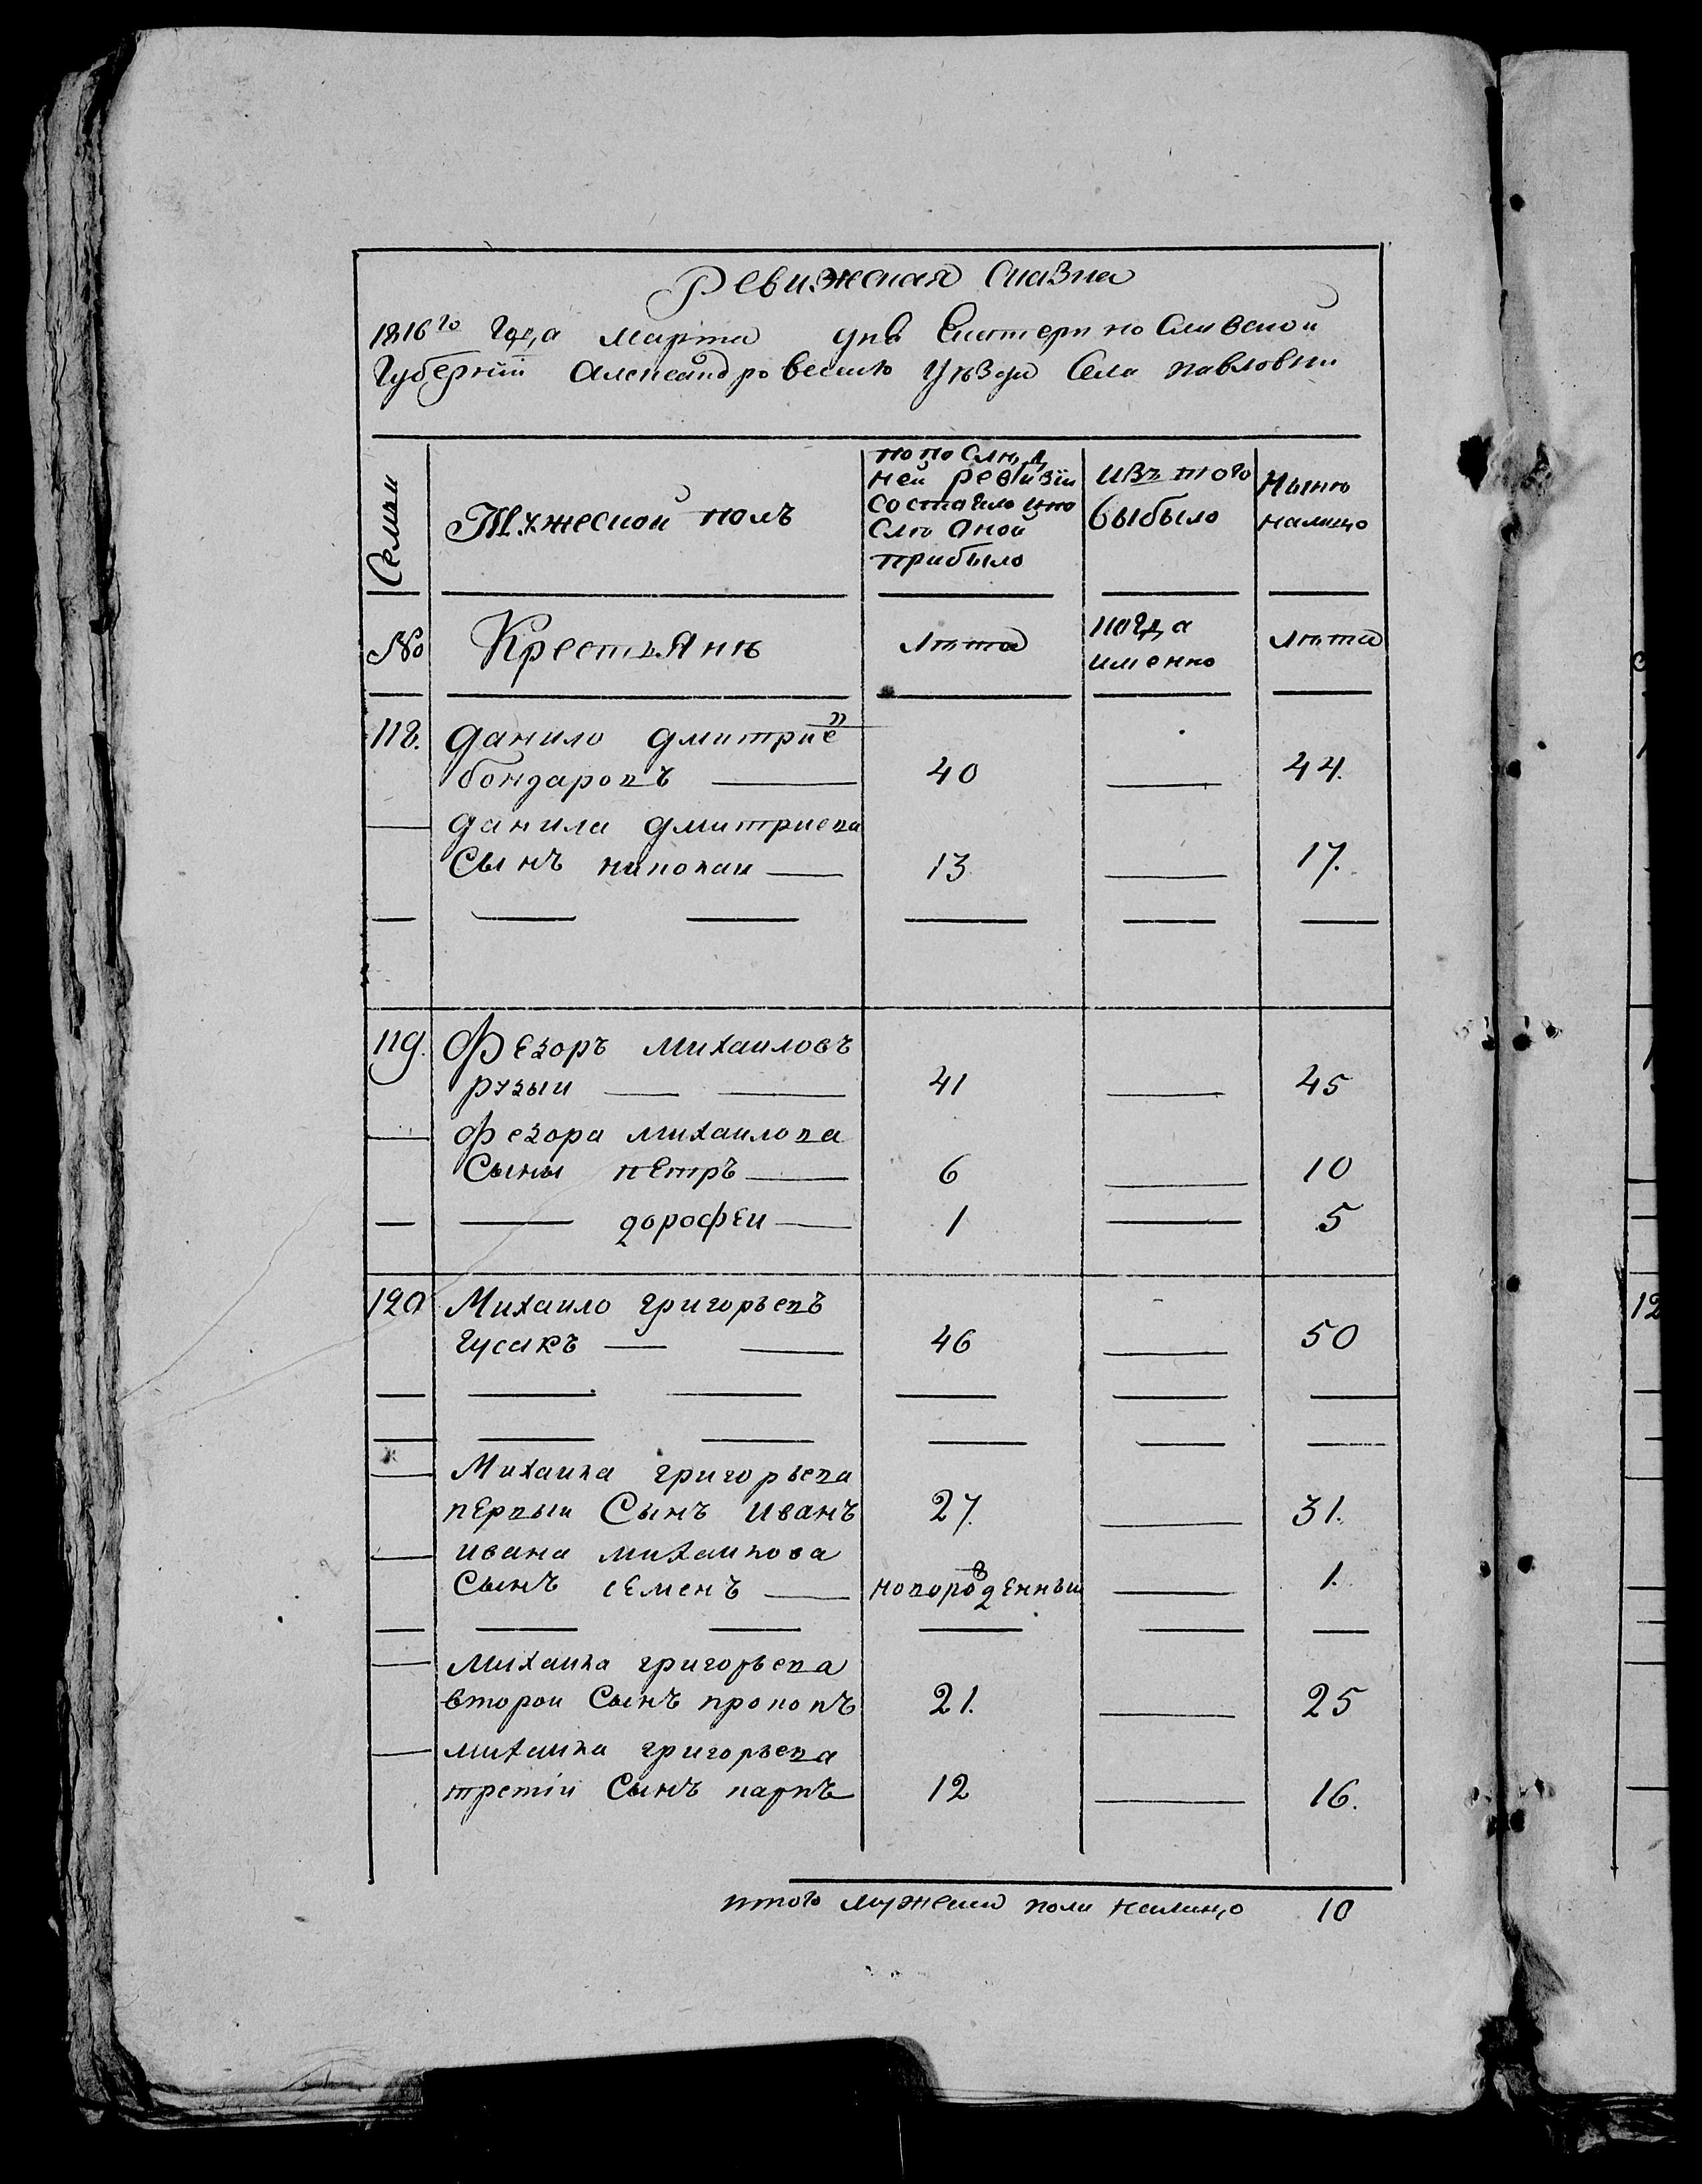 Ревижская сказка
1816го года марта дня Екатеринославской
Губернїи Александровскаго Уѣзда Села павловки
Семьи
Мужеской полъ
по послѣд
ней ревизїи
состояло и по
слѣ оной
прибыло
изъ того
выбыло
Нынѣ
налицо
№ Крестьянѣ лѣта когда
именно лѣта
118. данило дмитрие
въ
бондаровъ 40 44.
данила дмитриева
Сынъ николаи 13 17.
119. Федоръ михаиловъ
рудыи 41 45
федора михаилова
Сыны петръ 6 10
дорофеи 1 5
120 Михаило григорьевъ
гусакъ 46 50
Михаила григорьева
первыи Сынъ иванъ 27. 31.
ивана михаилова
Сынъ семенъ новорожденныи 1.
михаила григорьева
второи Сынъ прокопъ 21. 25
михаила григорьева
третіи Сынъ карпъ 12 16.
итого мужеска пола налицо 10
12